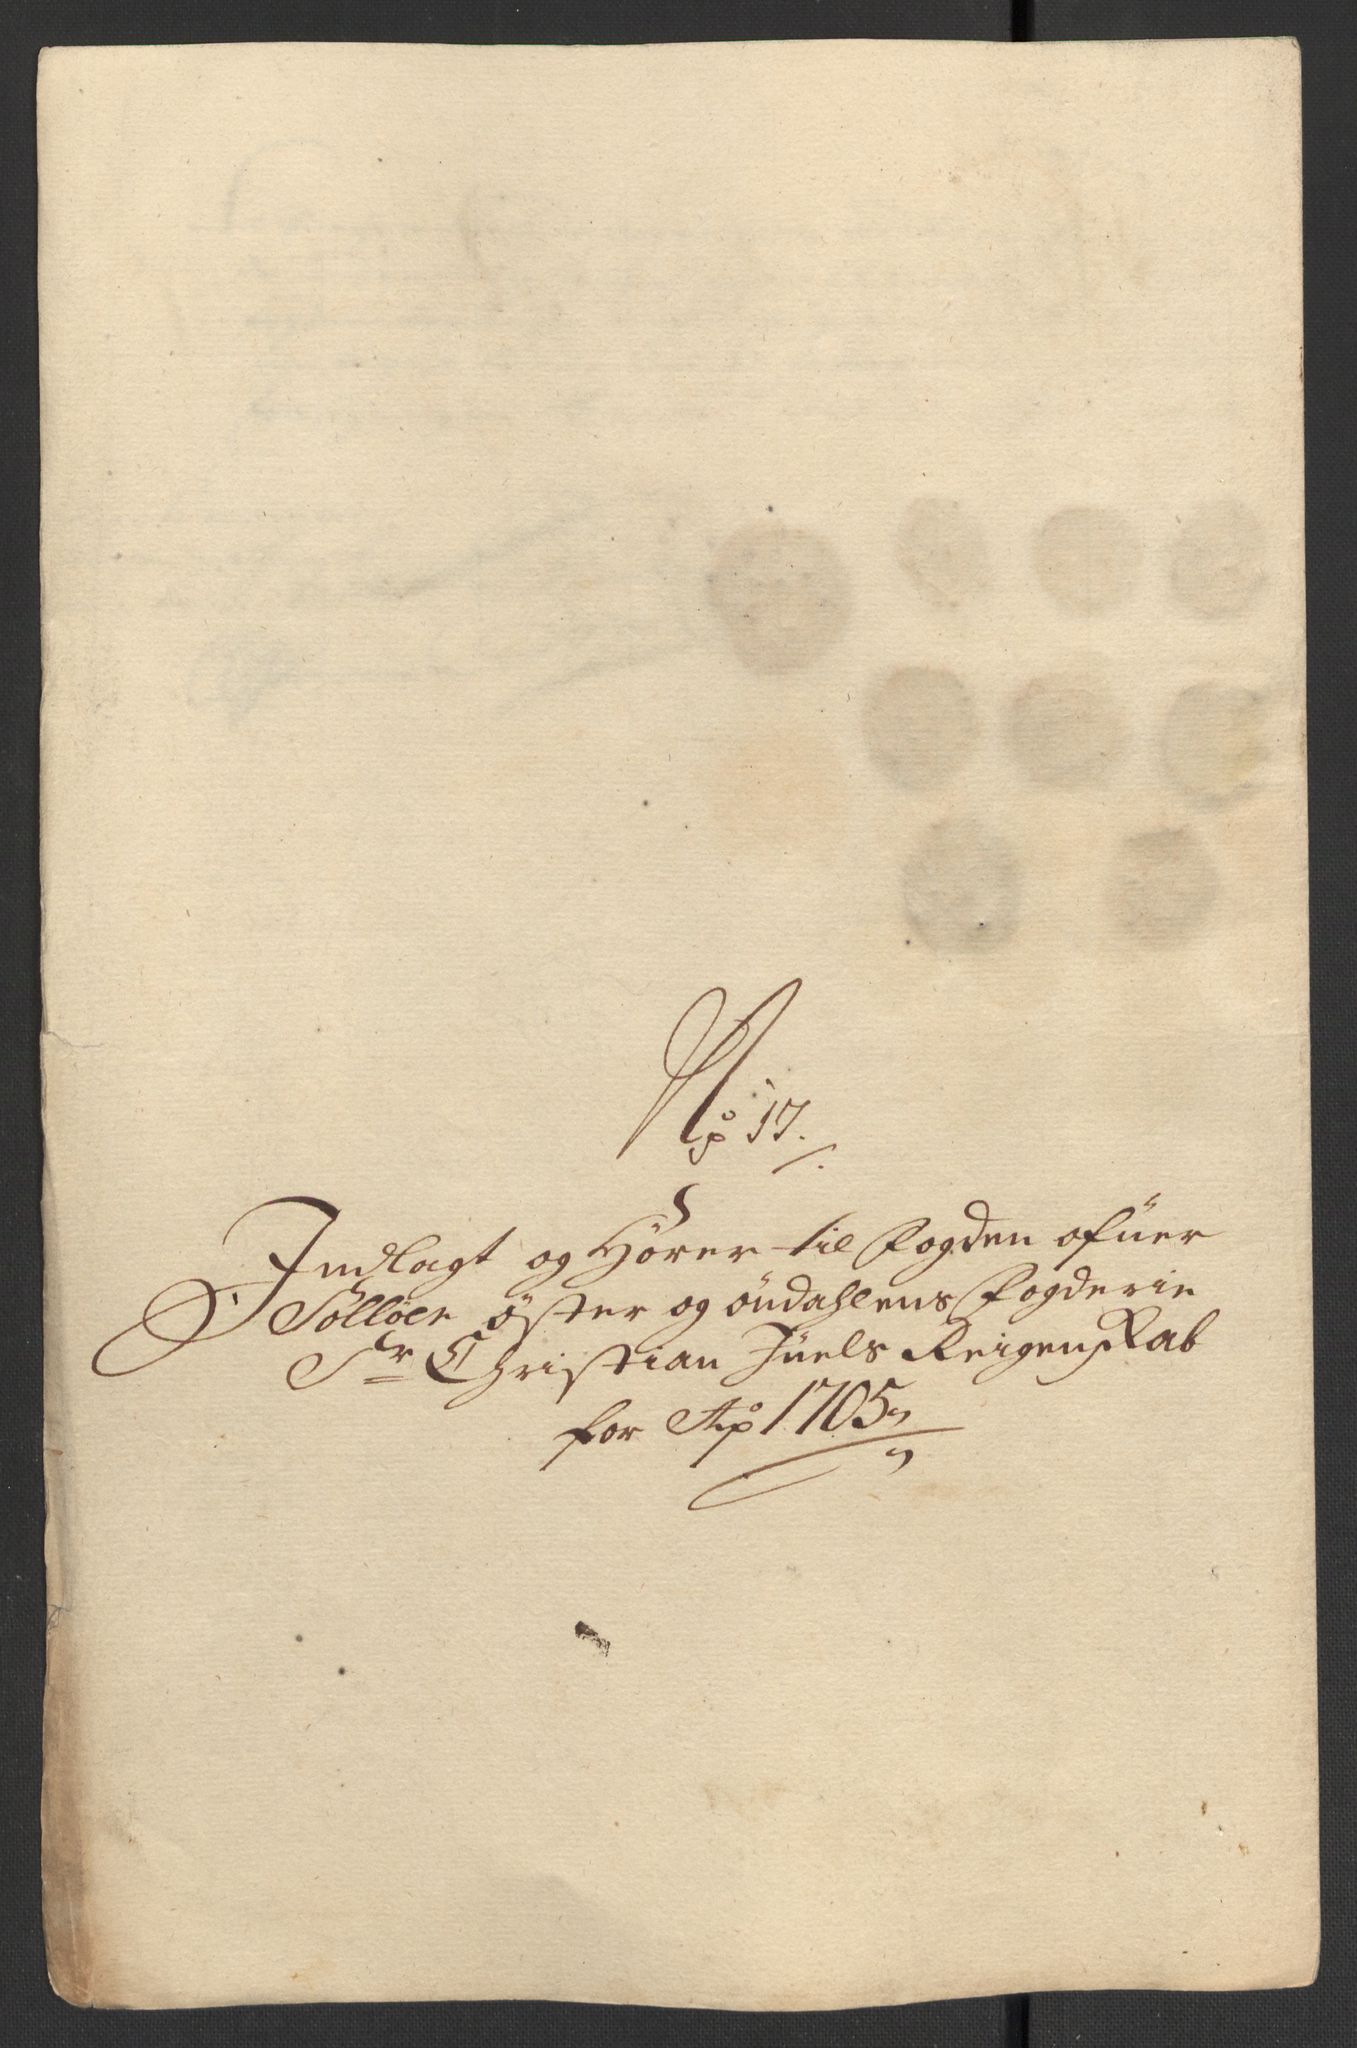 No 17.
Indlagt og Hörer til Fogden ofüer
Sollöer öster og öndahlens Fogderie
Sr Christian Jüels Reigenskab
for Ao 1705